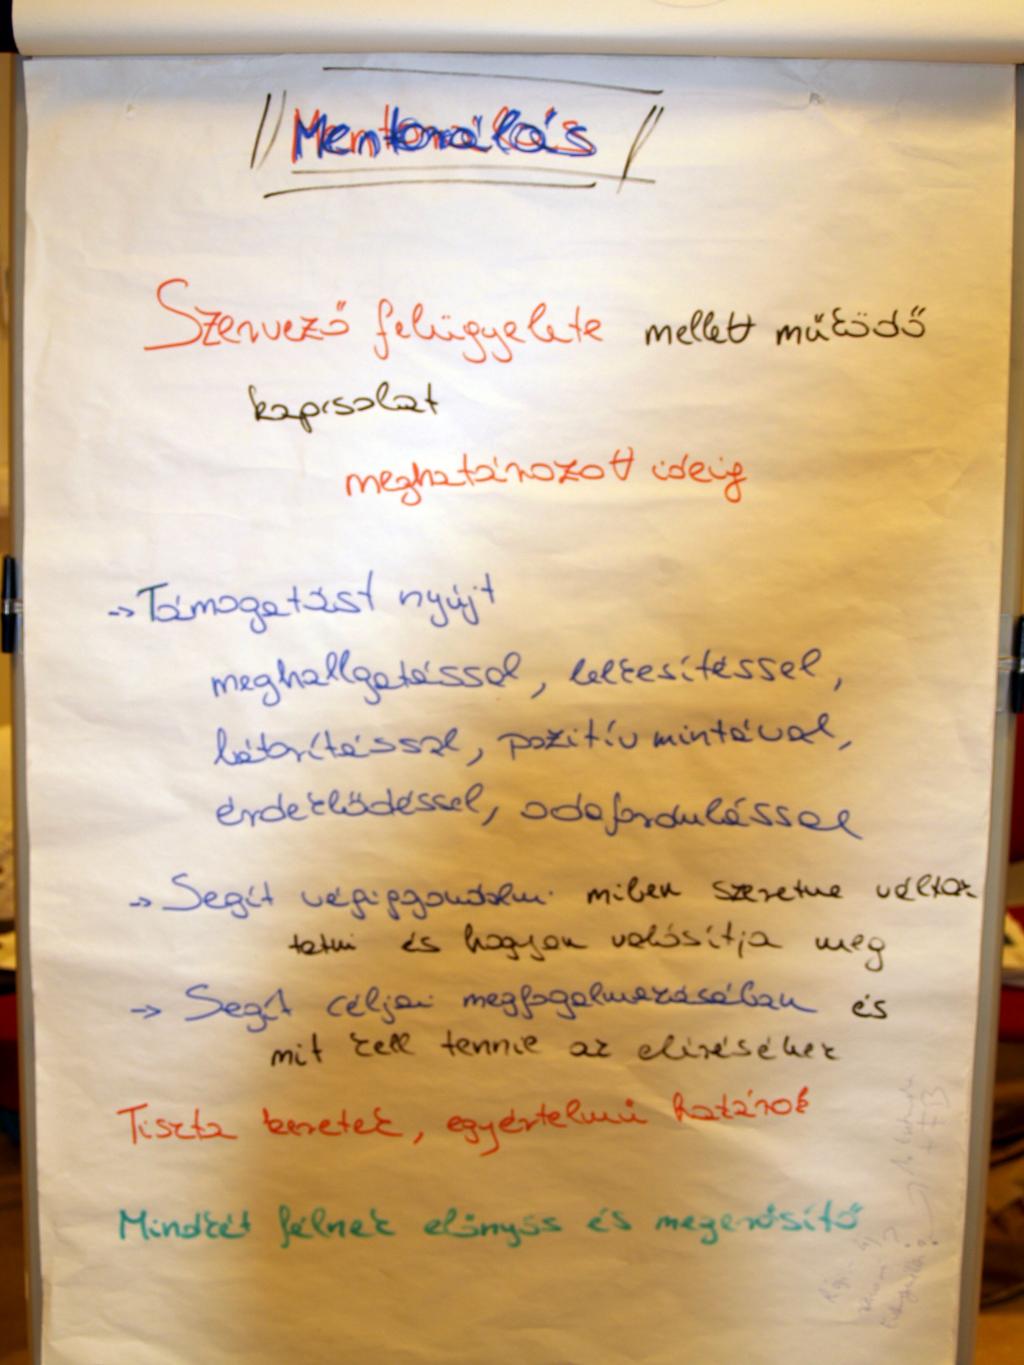 Mentorálás
Szervező felügyelete mellett működő
kapcsolat
meghatározott ideig
→ Támogatást nyújt
meghallgatással, lelkesítéssel,
bátorítással, pozitív mintával,
érdeklődéssel, odafordulással
→ Segít végiggondolni miben szeretne változ
tatni és hogyan valósítja meg
→ Segít céljai megfogalmazásában és
mit kell tennie az eléréséhez
Tiszta keretek, egyértelmű határok
Mindkét félnek előnyös és megerősítő